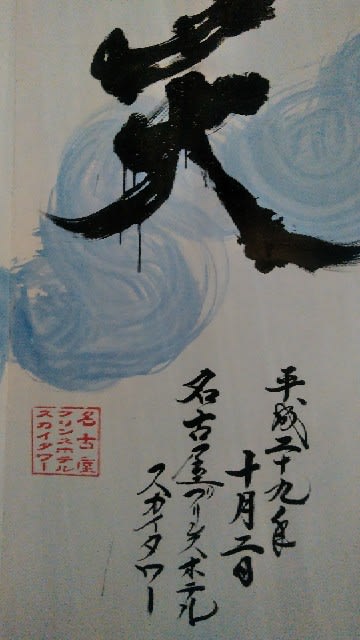 天
平成二十九年
十月二日
名古屋プリンスホテル
スカイタワー
名古屋
プリンスホテル
スカイタワー